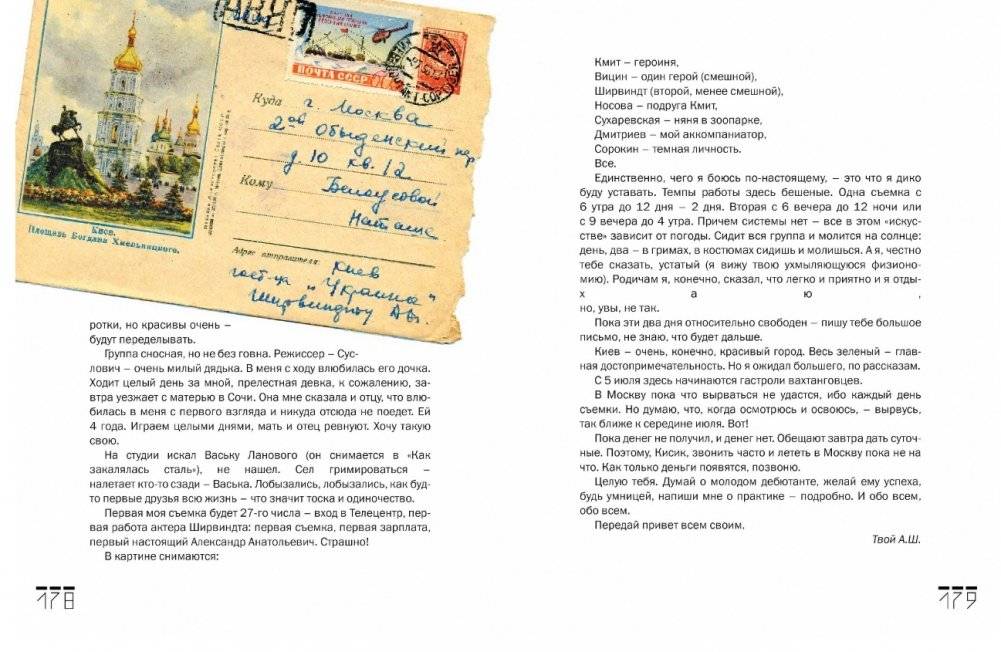 АВИА
ПОЧТА СССР
Куда г. Москва
2ой Обыденский пер
д. 10 кв. 12
Кому Белоусовой
Наташе
Адрес отправителя: Киев
гост-ца "Украина"
Ширвиндту А.
Киев.
Площадь Богдана Хмельницкого.
ротки, но красивы очень –
будут переделывать.
Группа сносная, но не без говна. Режиссер – Сус-
лович – очень милый дядька. В меня с ходу влюбилась его дочка.
Ходит целый день за мной, прелестная девка, к сожалению, за-
втра уезжает с матерью в Сочи. Она мне сказала и отцу, что влю-
билась в меня с первого взгляда и никуда отсюда не поедет. Ей
4 года. Играем целыми днями, мать и отец ревнуют. Хочу такую
свою.
На студии искал Ваську Ланового (он снимается в «Как
закалялась сталь»), не нашел. Сел гримироваться –
налетает кто-то сзади – Васька. Лобызались, лобызались, как буд-
то первые друзья всю жизнь – что значит тоска и одиночество.
Первая моя съемка будет 27-го числа – вход в Телецентр, пер-
вая работа актера Ширвиндта: первая съемка, первая зарплата,
первый настоящий Александр Анатольевич. Страшно!
В картине снимаются:
178
Кмит – героиня,
Вицин – один герой (смешной),
Ширвиндт (второй, менее смешной),
Носова – подруга Кмит,
Сухаревская – няня в зоопарке,
Дмитриев – мой аккомпаниатор,
Сорокин – темная личность.
Все.
Единственно, чего я боюсь по-настоящему, – это что я дико
буду уставать. Темпы работы здесь бешеные. Одна съемка с
6 утра до 12 дня – 2 дня. Вторая с 6 вечера до 12 ночи или
с 9 вечера до 4 утра. Причем системы нет – все в этом «искус-
стве» зависит от погоды. Сидит вся группа и молится на солнце:
день, два – в гримах, в костюмах сидишь и молишься. А я, честно
тебе сказать, устатый (я вижу твою ухмыляющуюся физионо-
мию). Родичам я, конечно, сказал, что легко и приятно и я отды-
х а ю ,
но, увы, не так.
Пока эти два дня относительно свободен – пишу тебе большое
письмо, не знаю, что будет дальше.
Киев – очень, конечно, красивый город. Весь зеленый – глав-
ная достопримечательность. Но я ожидал большего, по рассказам.
С 5 июля здесь начинаются гастроли вахтанговцев.
В Москву пока что вырваться не удастся, ибо каждый день
съемки. Но думаю, что, когда осмотрюсь и освоюсь, – вырвусь,
так ближе к середине июля. Вот!
Пока денег не получил, и денег нет. Обещают завтра дать суточ-
ные. Поэтому, Кисик, звонить часто и лететь в Москву пока не на
что. Как только деньги появятся, позвоню.
Целую тебя. Думай о молодом дебютанте, желай ему успеха,
будь умницей, напиши мне о практике – подробно. И обо всем,
обо всем.
Передай привет всем своим.
Твой А.Ш.
179